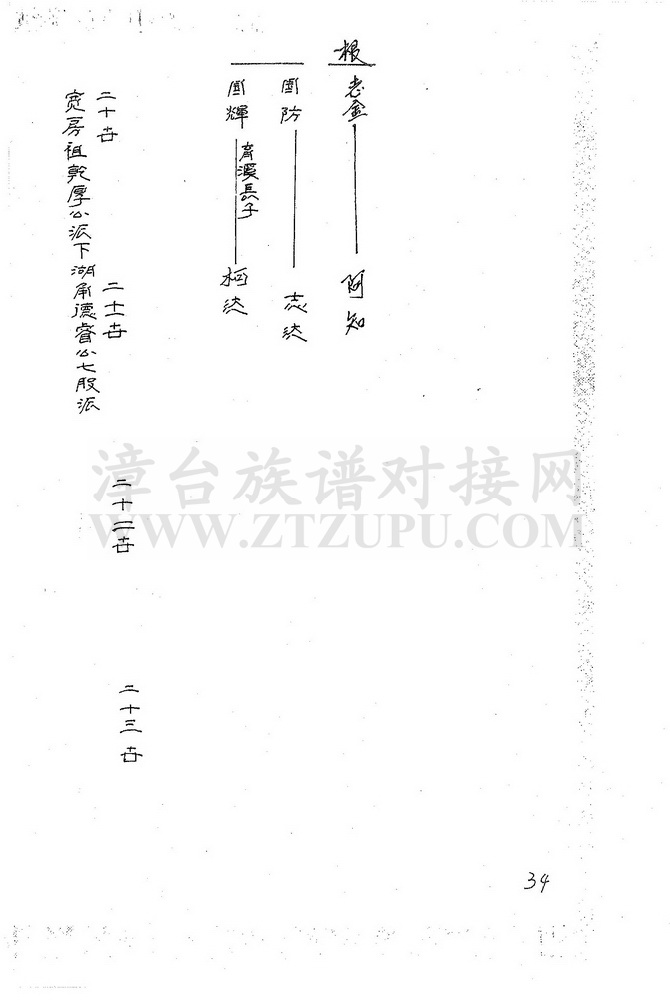 根
志金
阿知
國防
志達
國輝
育溪長子
柯達
二十世
二十一世
二十二世
二十三世
寬房祖乾厚公派下湖承德睿公七股派
漳台族谱对接网
WWW.ZTZUPU.COM
34